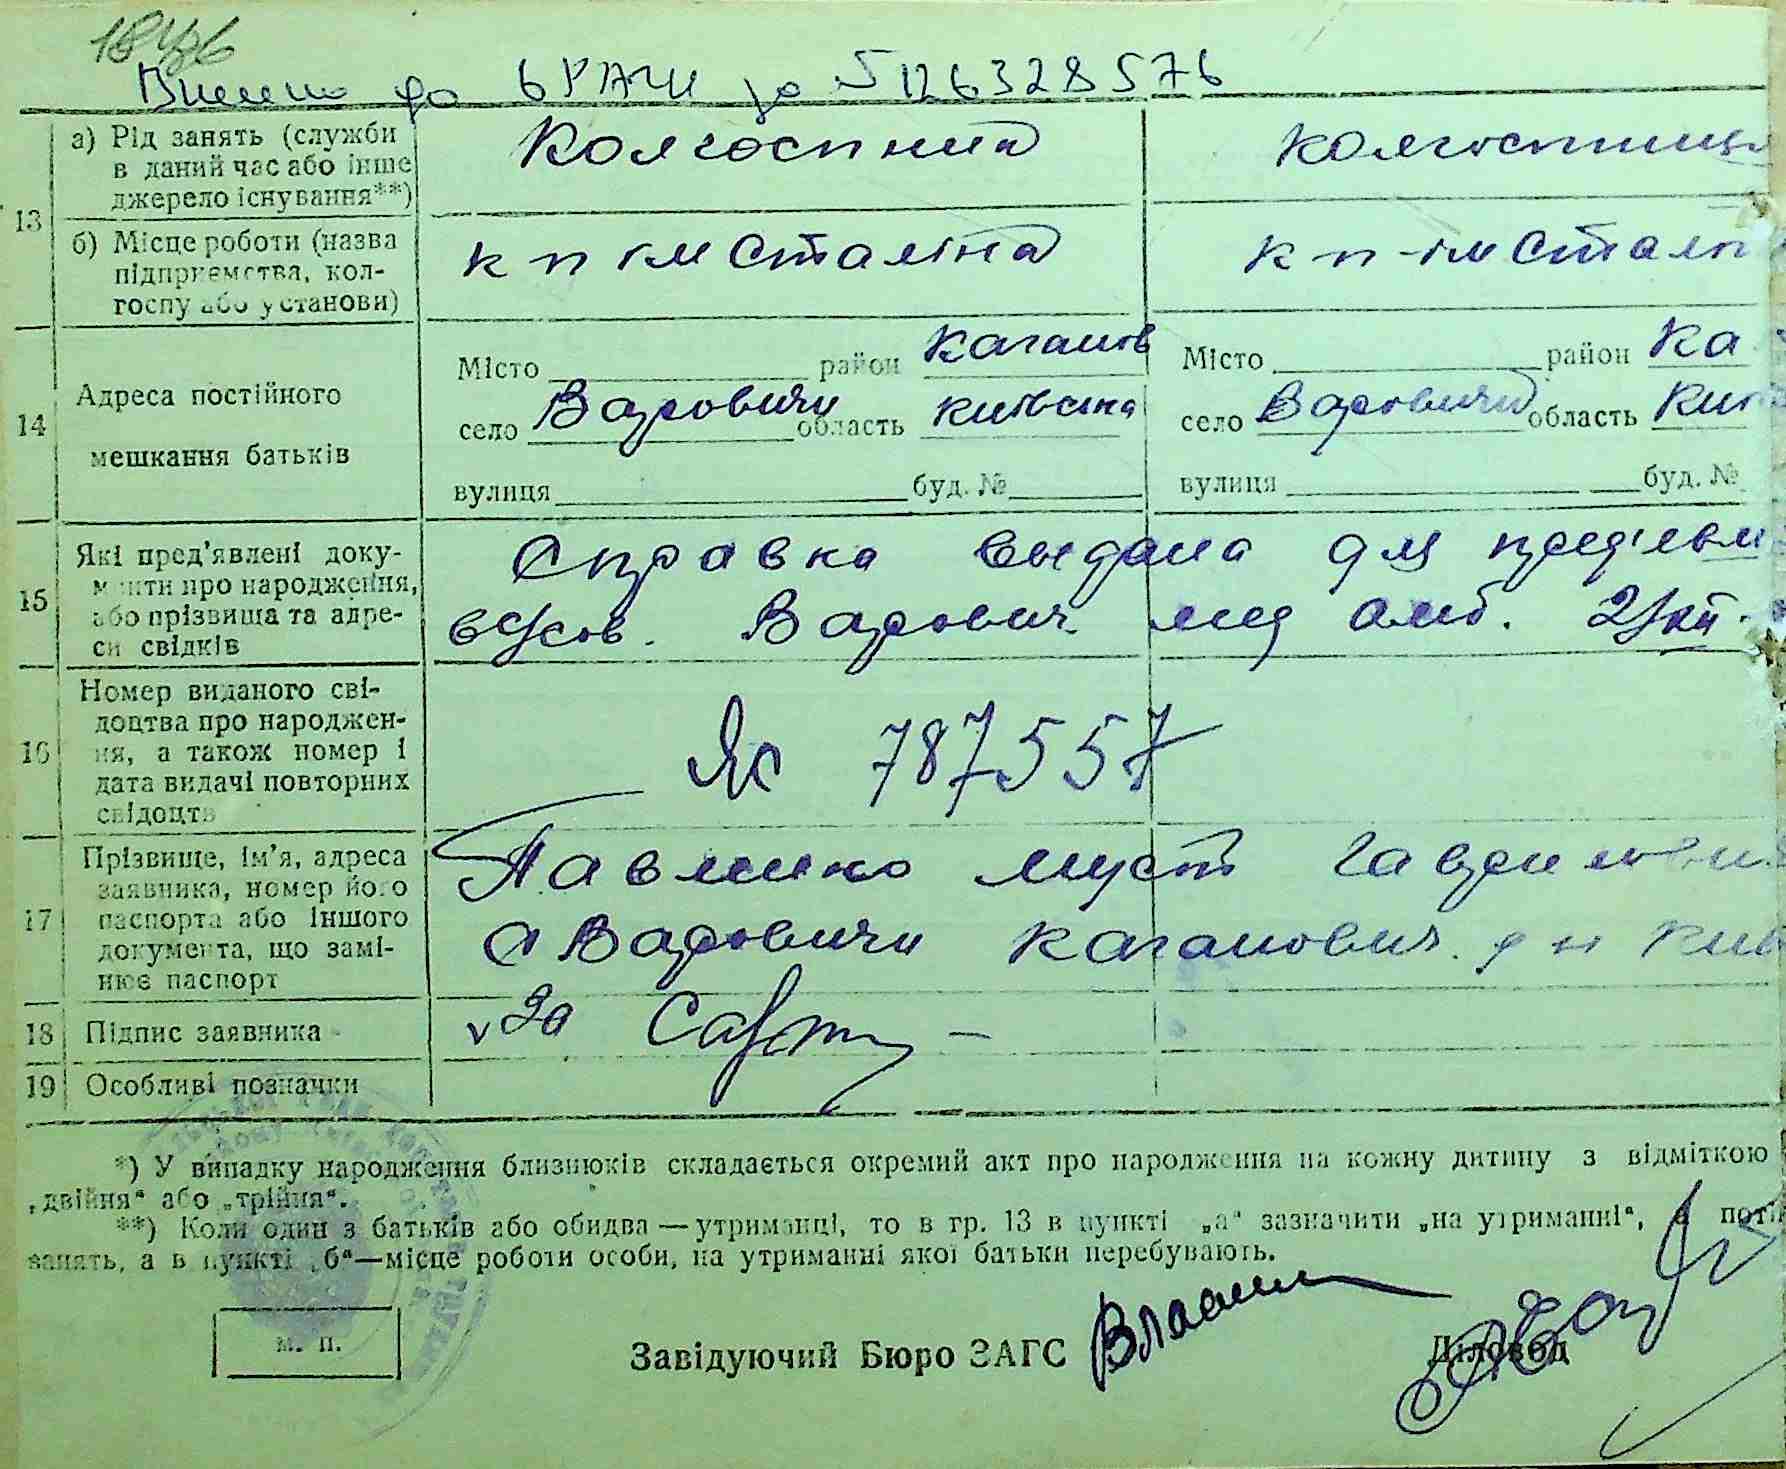 до ДРАЦС за № 126328576
13
а) Рід занять (служби
в даний час або інше
джерело існування**)
колгоспниця
б) Місце роботи (назва
підприємства, кол-
госпу або установи)
к п ім Сталіна
к п - ім Сталін
14
Адреса постійного
мешкання батьків
Місто район Каганов
село Варовичи область Київська
вулиця буд. №
Місто район Ка
село Варовичи область Киї
вулиця буд. №
15
Які пред’явлені доку-
менти про народження,
або прізвища та адре-
си свідків
Справка выдана для
Варович. мед амб.
16
Номер виданого сві-
доцтва про народжен-
ня, а також номер і
дата видачі повторних
свідоцтв
787557
17
Прізвище, ім’я, адреса
заявника, номер його
паспорта або іншого
документа, що замі-
нює паспорт
Павленко
с Варовичи Каганович. р н Киї
18
Підпис заявника
За
19
Особливі позначки
*) У випадку народження близнюків складається окремий акт про народження на кожну дитину з відміткою
„двійня“ або „трійня“.
**) Коли один з батьків або обидва — утриманці, то в гр. 13 в пункті „а“ зазначити „на утриманні“, а потім
занять, а в пункті „б“—місце роботи особи, на утриманні якої батьки перебувають.
м. п.
Завідуючий Бюро ЗАГС
Діловод